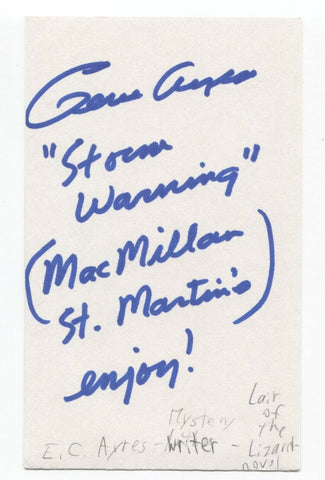 Gene Ayres
"Storm
Warning"
(MacMillan
St. Martin's)
enjoy!
E.C. Ayres - Mystery Writer - Lair
of
the
Lizard -
novel